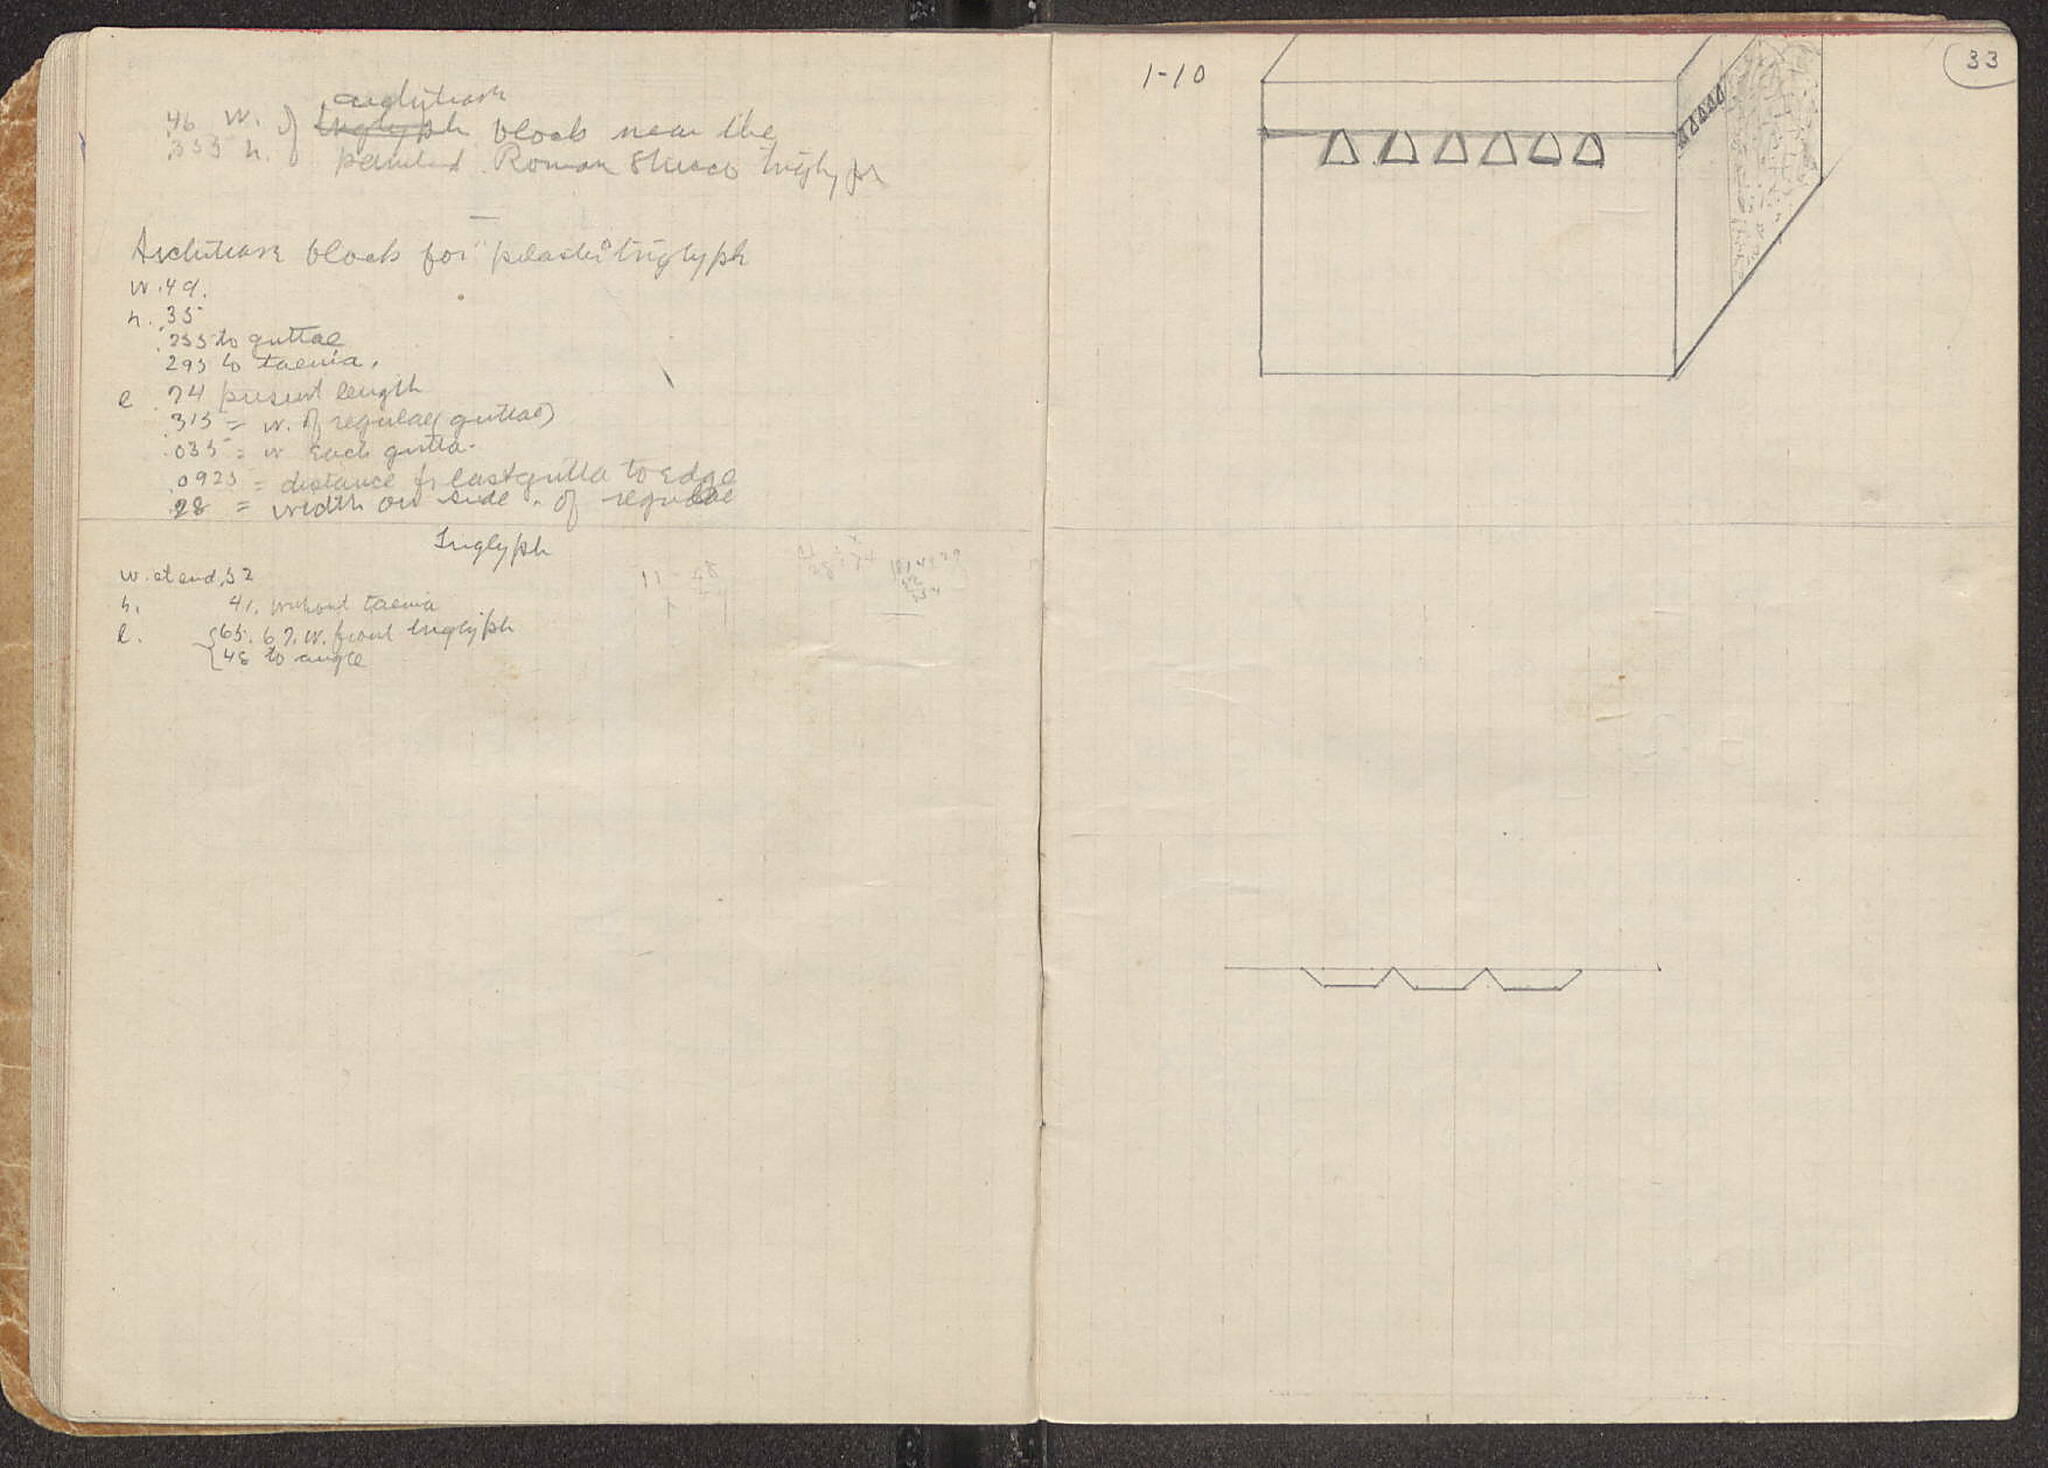 architrave
.46 w. of triglyph block near the
.355 h. painted Roman Stucco triglyph
Architrave block for "pilaster" triglyph
w .49.
h. .35
.255 to guttae
.293 to taenia.
l .74 present length
.315 = w. of regulae (guttae)
.035 = w each gutta.
.0925 = distance fr last gutta to edge
.28 = width on side. of regulae
Triglyph
w. at end .52
h. 41. without taenia
l. 65. 67. w. front triglyph
48 to angle
1-10
33